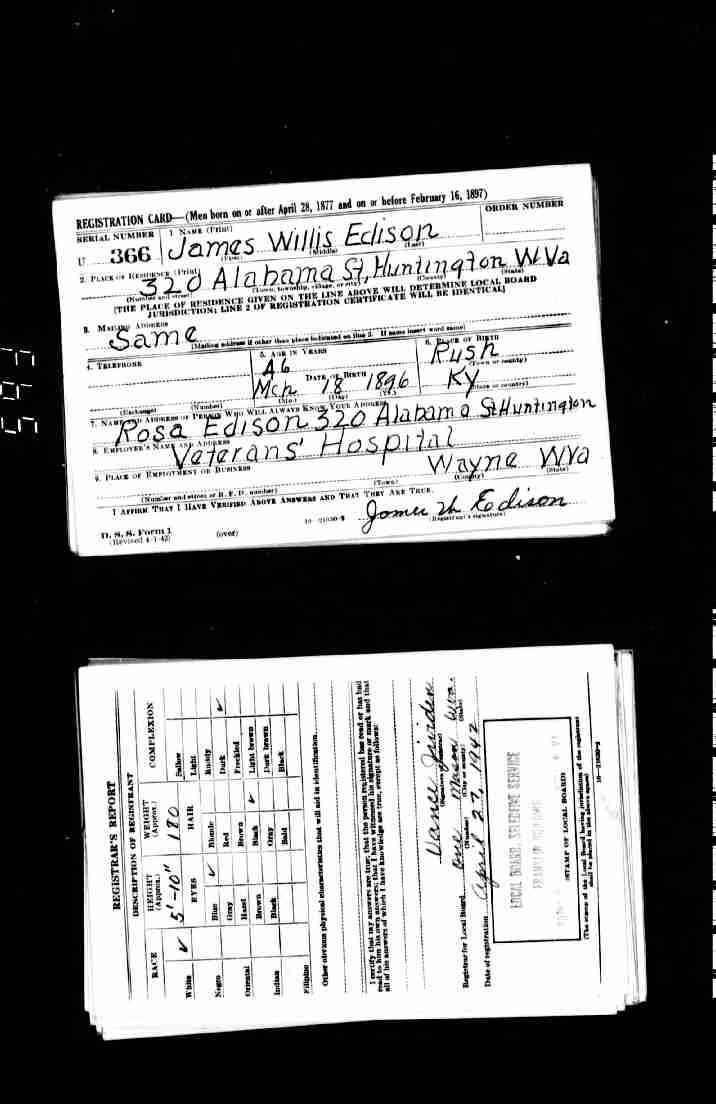 REGISTRATION CARD—(Men born on or after April 28, 1877 and on or before February 16, 1897)
SERIAL NUMBER 1. NAME (Print) ORDER NUMBER
U 366 James Willis Edison
(First) (Middle) (Last)
2. PLACE OF RESIDENCE (Print)
320 Alabama St, Huntington W Va
(Number and street) (Town, township, village, or city) (County) (State)
[THE PLACE OF RESIDENCE GIVEN ON THE LINE ABOVE WILL DETERMINE LOCAL BOARD
JURISDICTION; LINE 2 OF REGISTRATION CERTIFICATE WILL BE IDENTICAL]
3. MAILING ADDRESS
Same
[Mailing address if other than place indicated on line 2. If same insert word same]
4. TELEPHONE 5. AGE IN YEARS 6. PLACE OF BIRTH
46 Rush
DATE OF BIRTH (Town or county)
Mch 18 1896 KY
(Exchange) (Number) (Mo.) (Day) (Yr.) (State or country)
7. NAME AND ADDRESS OF PERSON WHO WILL ALWAYS KNOW YOUR ADDRESS
Rosa Edison 320 Alabama St Huntington
8. EMPLOYER'S NAME AND ADDRESS
Veterans' Hospital
9. PLACE OF EMPLOYMENT OR BUSINESS
Wayne W Va
(Number and street or R. F. D. number) (Town) (County) (State)
I AFFIRM THAT I HAVE VERIFIED ABOVE ANSWERS AND THAT THEY ARE TRUE.
D. S. S. Form 1
(Revised 4-1-42) (over) 16—21630-2 James W Edison
(Registrant's signature)
REGISTRAR'S REPORT
DESCRIPTION OF REGISTRANT
RACE HEIGHT (Approx.) WEIGHT (Approx.) COMPLEXION
5'-10" 180
White ✓ EYES HAIR Sallow
Light
Negro Blue ✓ Blonde Ruddy ✓
Gray Red Dark
Oriental Hazel Brown Freckled
Brown Black ✓ Light brown
Indian Black Gray Dark brown
Bald Black
Filipino
Other obvious physical characteristics that will aid in identification
I certify that my answers are true; that the person registered has read or has had
read to him his own answers; that I have witnessed his signature or mark and that
all of his answers of which I have knowledge are true, except as follows:
Vance
(Signature of registrar)
Registrar for Local Board One Mason W Va.
(Number) (City or county) (State)
Date of registration April 27, 1942
LOCAL BOARD, SELECTIVE SERVICE
(STAMP OF LOCAL BOARD)
(The stamp of the Local Board having jurisdiction of the registrant
shall be placed in the above space)
16—21630-2